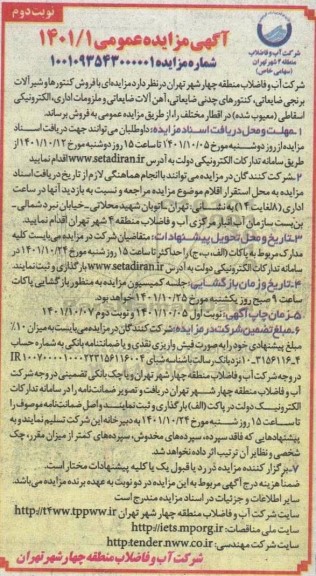 نوبت دوم
شرکت آب و فاضلاب
منطقه ۴ شهر تهران
(سهامی خاص)
آگهی مزایده عمومی ۱۴۰۱/۱
شماره مزایده ۱۰۰۱۰۹۳۵۴۳۰۰۰۰۰۱
شرکت آب و فاضلاب منطقه چهار شهر تهران در نظر دارد مزایده‌ای با فروش کنتورها و شیرآلات
برنجی ضایعاتی، کنتورهای چدنی ضایعاتی، آهن آلات ضایعاتی و ملزومات اداری، الکترونیکی
اسقاطی (معیوب شده) در اقطار مختلف را، از طریق مزایده عمومی به فروش برساند.
۱. مهلت و محل دریافت اسناد مزایده: داوطلبان می‌توانند جهت دریافت اسناد
مزایده از روز دوشنبه مورخ ۱۴۰۱/۱۰/۰۵ تا ساعت ۱۵ روز دوشنبه مورخ ۱۴۰۱/۱۰/۱۲ از
طریق سامانه تدارکات الکترونیکی دولت به آدرس www.setadiran.ir اقدام نمایید
۲. شرکت کنندگان در مزایده می‌توانند با انجام هماهنگی لازم از تاریخ دریافت اسناد
مزایده به محل استقرار اقلام موضوع مزایده مراجعه و نسبت به بازدید آنها در ساعت
اداری (۸ لغایت ۱۴) به نشانی: تهران-اتوبان شهید محلاتی-خیابان نبرد شمالی-
بن‌بست سازمان آب-انبار مرکزی آب و فاضلاب منطقه ۴ شهر تهران اقدام نمایید.
۳. تاریخ و محل تحویل پیشنهادات: متقاضیان شرکت در مزایده می‌بایست کلیه
مدارک مربوط به پاکات (الف، ب، ج) را حداکثر تا ساعت ۱۵ روز شنبه مورخ ۱۴۰۱/۱۰/۲۴ در
سامانه تدارکات الکترونیکی دولت به آدرس www.setadiran.ir بارگذاری و ثبت نمایند.
۴. تاریخ و زمان بازگشایی: جلسه کمیسیون مزایده به منظور بازگشایی پاکات
ساعت ۹ صبح روز یکشنبه مورخ ۱۴۰۱/۱۰/۲۵ خواهد بود.
۵. زمان چاپ آگهی: نوبت اول ۱۴۰۱/۱۰/۰۵ و نوبت دوم ۱۴۰۱/۱۰/۰۷
۶. مبلغ تضمین شرکت در مزایده: شرکت کنندگان در مزایده می‌بایست به میزان ۱۰٪
مبلغ پیشنهادی خود را به صورت فیش واریزی نقدی و یا ضمانتنامه بانکی به شماره حساب
نزد بانک رسالت با شناسه شبای
در وجه شرکت آب و فاضلاب منطقه چهار شهر تهران و یا چک بانکی تضمینی در وجه شرکت
آب و فاضلاب منطقه چهار شهر تهران دریافت و تصویر ضمانتنامه را در سامانه تدارکات
الکترونیک دولت در پاکت (الف) بارگذاری و ثبت نمایند و اصل ضمانتنامه موصوف را
تا ساعت ۱۵ روز شنبه مورخ ۱۴۰۱/۱۰/۲۴ به دبیرخانه این شرکت تسلیم نمایند و به
پیشنهادهایی که فاقد سپرده، سپرده‌های مخدوش، سپرده‌های کمتر از میزان مقرر، چک
شخصی و نظایر آن ترتیب اثر داده نخواهد شد.
۷. برگزار کننده مزایده در رد یا قبول یک یا کلیه پیشنهادات مختار است.
ضمنا هزینه درج آگهی مربوط به این مزایده در دو نوبت به عهده برنده مزایده می‌باشد.
سایر اطلاعات و جزئیات در اسناد مزایده مندرج است
http://t4ww.tppww.ir آدرس اینترنتی:
سایت ملی مناقصات: http://iets.mporg.ir
سایت شرکت مهندسی: http:tender.nww.co.ir
شرکت آب و فاضلاب منطقه چهار شهر تهران